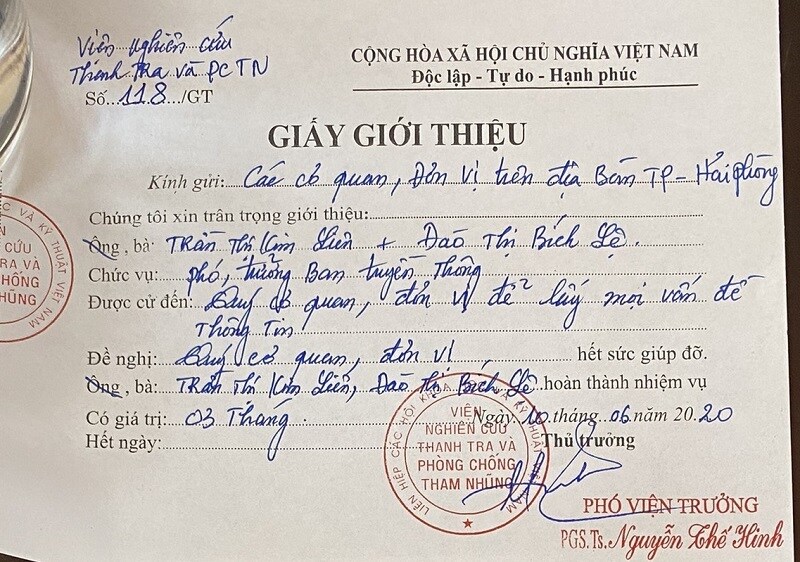 Viện nghiên cứu
Thanh Tra và PCTN
Số...118.../GT
CỘNG HÒA XÃ HỘI CHỦ NGHĨA VIỆT NAM
Độc lập - Tự do - Hạnh phúc
GIẤY GIỚI THIỆU
Kính gửi: Các cơ quan, Đơn vị trên địa Bàn TP - Hải phòng
Chúng tôi xin trân trọng giới thiệu:
Ông, bà: Trần Thị Kim Liên + Đào Thị Bích Lệ.
Chức vụ: phó, trưởng Ban truyền Thông
Được cử đến: Quý cơ quan, đơn vị để lấy mọi vấn đề
Thông Tin
Đề nghị: Quý cơ quan, đơn vị, hết sức giúp đỡ.
Ông, bà: Trần Thị Kim Liên, Đào Thị Bích Lệ. hoàn thành nhiệm vụ
Có giá trị: 03 Tháng. Ngày 10 tháng 06 năm 2020
Hết ngày: Thủ trưởng
LIÊN HIỆP CÁC HỘI KHOA HỌC VÀ KỸ THUẬT VIỆT NAM
VIỆN
NGHIÊN CỨU
THANH TRA VÀ
PHÒNG CHỐNG
THAM NHŨNG
PHÓ VIỆN TRƯỞNG
PGS.Ts. Nguyễn Thế Hinh
C VÀ KỸ THUẬT VIỆT NAM
ỆN
CỨU
TRA VÀ
CHỐNG
NHŨNG